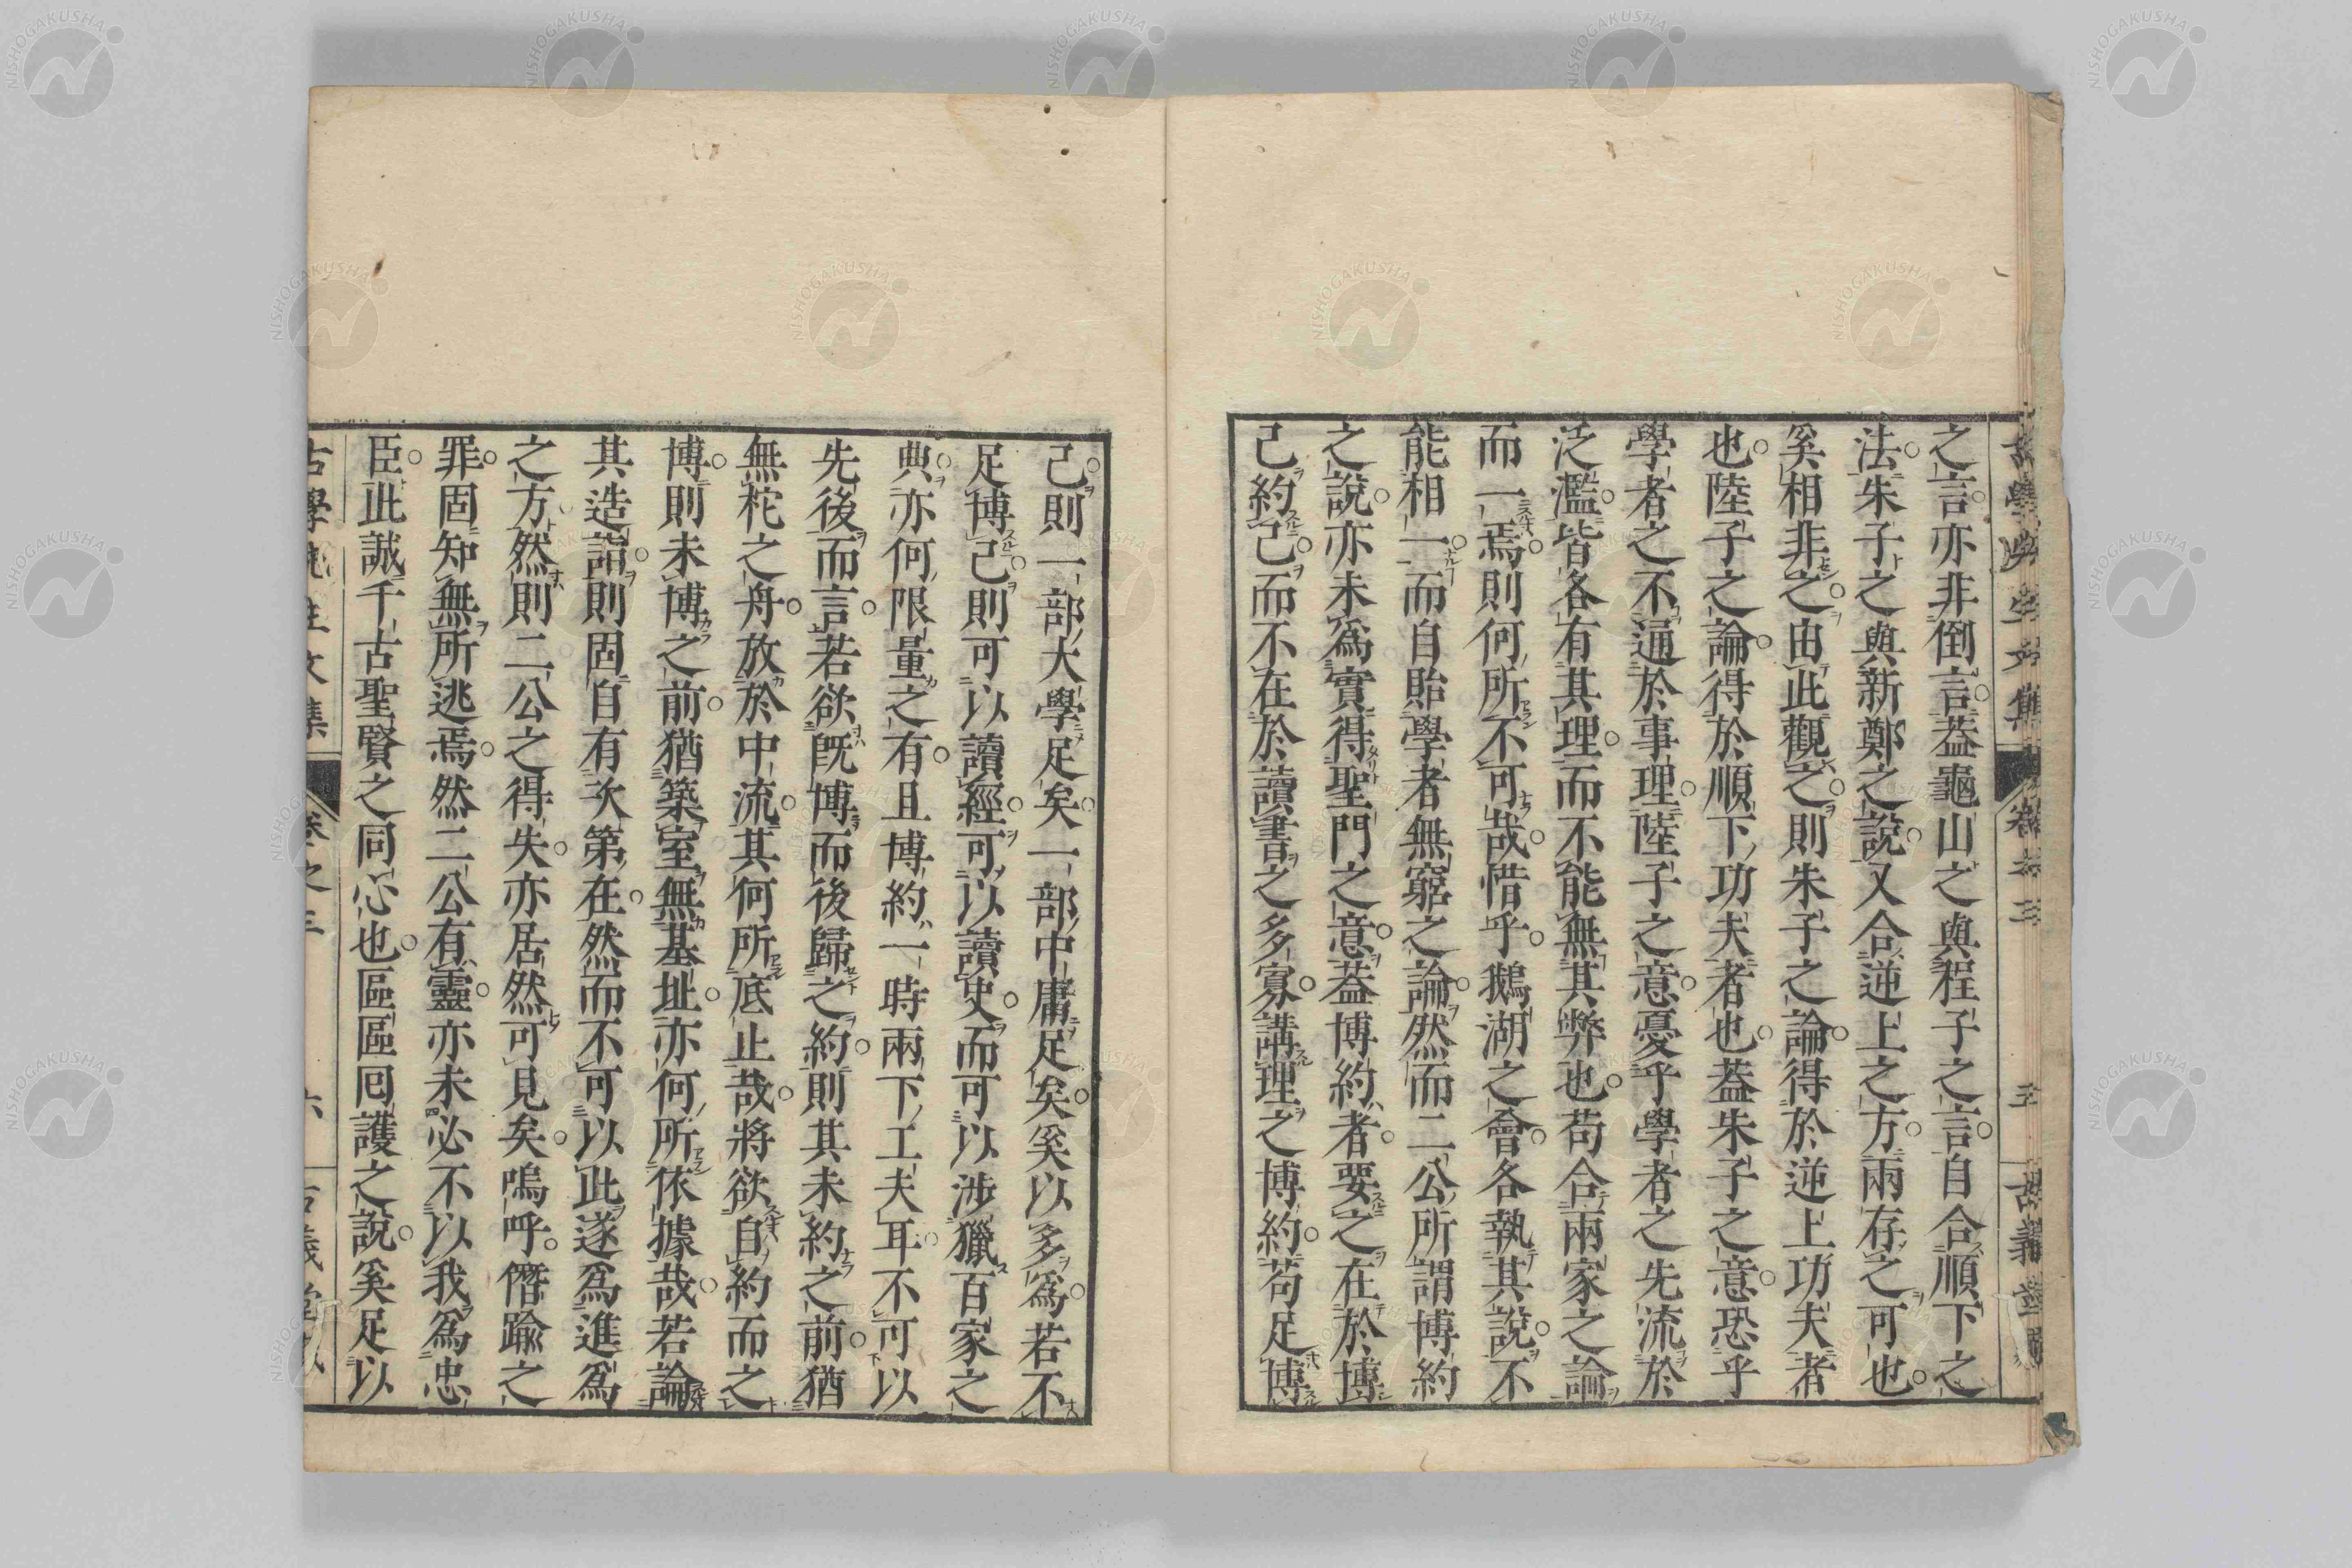 之言亦非倒言蓋龜山之與程子之言自合順下之
法朱子之與新鄭之說又合逆上之方兩存之可也
奚相非之由此觀之則朱子之論得於逆上功夫者
也陸子之論得於順下功夫者也蓋朱子之意恐乎
學者之不通於事理陸子之意憂乎學者之先流於
泛濫皆各有其理而不能無其弊也苟合兩家之論
而一焉則何所不可哉惜乎鵝湖之會各執其說不
能相一而自貽學者無窮之論然而二公所謂博約
之說亦未爲實得聖門之意蓋博約者要之在於博
己約己而不在於讀書之多寡講理之博約苟足博
己則一部大學足矣一部中庸足矣奚以多爲若不
足博己則可以讀經可以讀史而可以涉獵百家之
典亦何限量之有且博約一時兩下工夫耳不可以
先後而言若欲旣博而後歸之約則其未約之前猶
無柁之舟放於中流其何所底止哉將欲自約而之
博則未博之前猶築室無基址亦何所依據哉若論
其造詣則固自有次第在然而不可以此遂爲進爲
之方然則二公之得失亦居然可見矣嗚呼僭踰之
罪固知無所逃焉然二公有靈亦未必不以我爲忠
臣此誠千古聖賢之同心也區區囘護之說奚足以
古學先生文集 卷之三 六
NISHOGAKUSHA